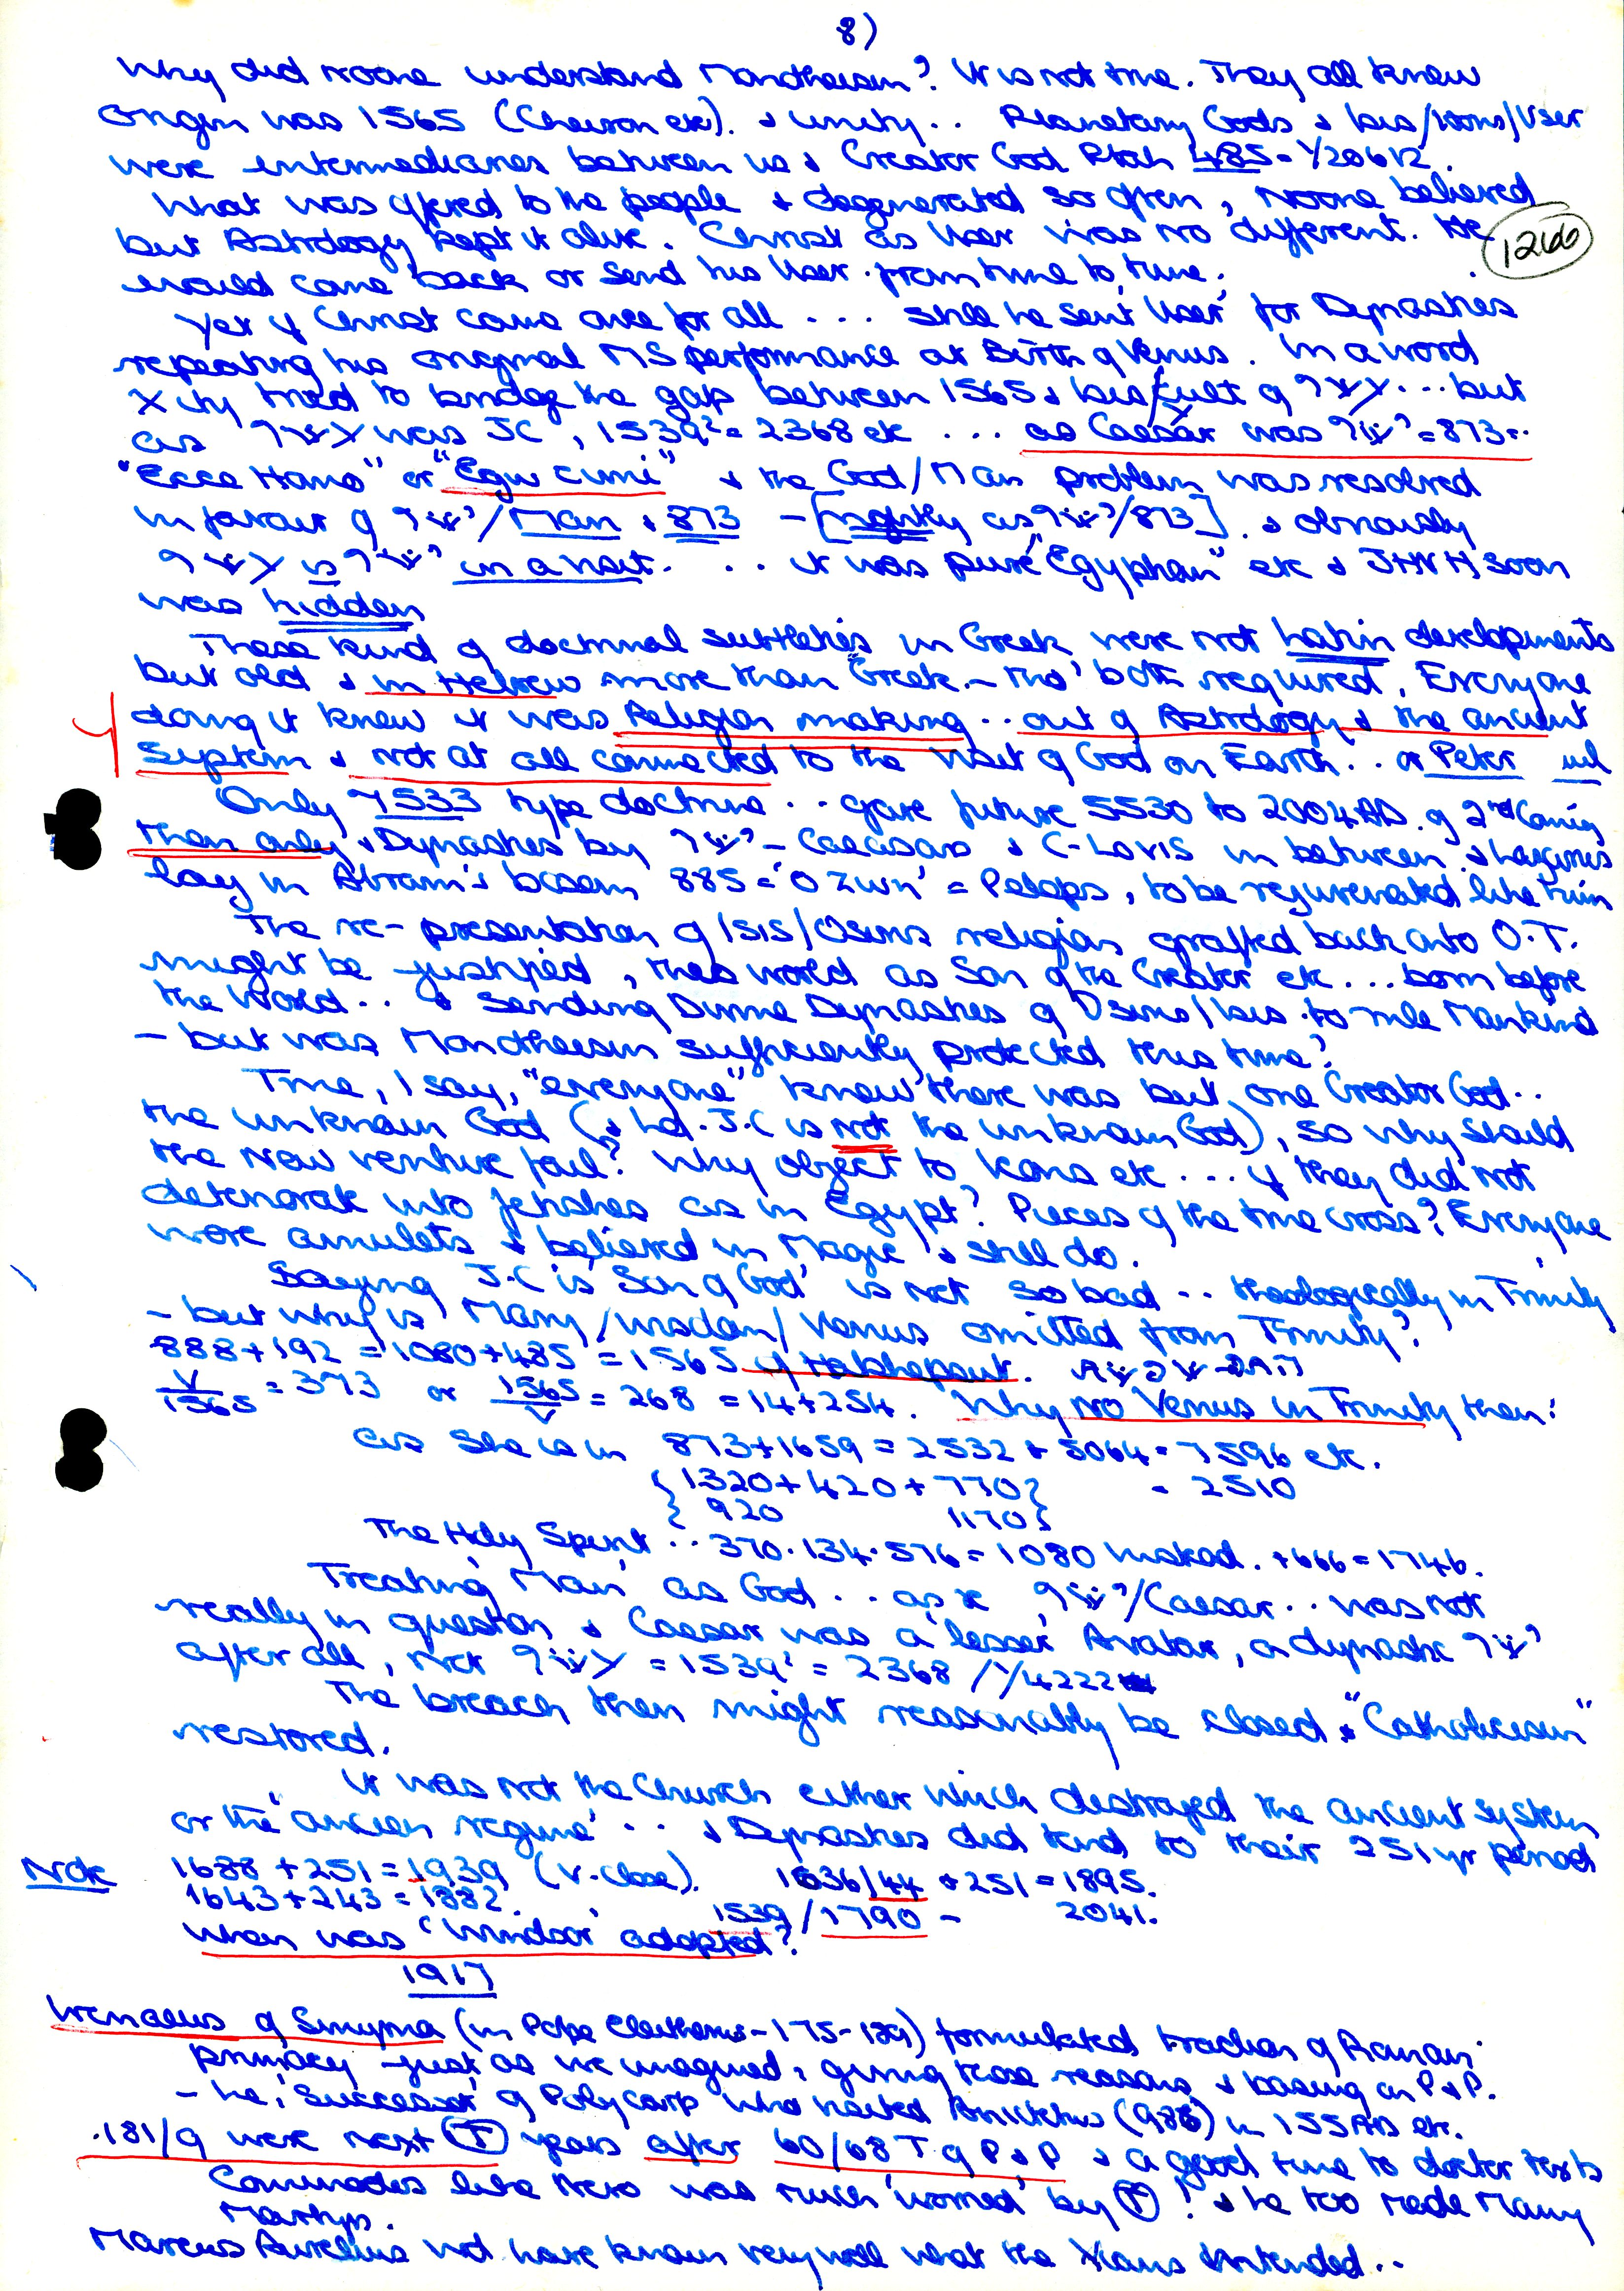 8)
Why did noone understand Monotheism? It is not true. They all knew
origin was 1565 (Cheiron etc). & unity.. Planetary Gods & Isis/Horus/User
were intermediaries between us & Creator God Ptah 485 = Y206V2.
What was offered to the people & degenerated so often, Noone believed
but Astrology kept it alive. Christ as User was no different. He
1266
would come back or send his User from time to time.
Yet if Christ came once for all ... still he sent 'User' for Dynasties
repeating his original MS performance at Birth of Venus. In a word
Xity tried to bridge the gap between 1565 & Isis/cult of ... but
as was JC, 1539² = 2368 etc ... as Caesar was = 873 ..
"Ecce Homo" or "Egw eimi" & the God/Man problem was resolved
in favour of /Man & 873 - [rightly as /873]. & obviously
is in a nest. .. it was pure "Egyptian" etc & JHVH soon
was hidden
These kind of doctrinal subtleties in Greek were not Latin developments
but old & in Hebrew more than Greek - tho' both required. Everyone
doing it knew it was Religion making .. out of Astrology & the ancient
System & not at all connected to the Visit of God on Earth .. or Peter
Only 7533 type doctrine .. gave future 5530 to 2004 AD. of 2nd Coming
then only & Dynasties by - Caesars & C-LOVIS in between &
lay in Abram's bosom 885 = 'O Zwn' = Pelops, to be rejuvenated like him
The re-presentation of Isis/Osiris religion grafted back onto O.T.
might be justified, this world as Son of the Creator etc ... born before
the World .. & sending Divine Dynasties of Osiris/Isis to rule Mankind
- but was Monotheism sufficiently protected this time?
True, I say, "everyone" knew there was but one Creator God ..
the unknown God (& J.C is not the unknown God), so why should
the new venture fail? Why object to Icons etc ... if they did not
deteriorate into fetishes as in Egypt? Pieces of the true cross? Everyone
wore amulets & believed in Magic & still do.
Saying J.C is 'Son of God' is not so bad .. theologically in Trinity
- but why is Mary/Wisdom/Venus omitted from Trinity?
888 + 192 = 1080 + 485 = 1565 of Hatshepsut.
V/1565 = 373 or 1565/V = 268 = 14 + 254. Why no Venus in Trinity then?
as she is in 873 + 1659 = 2532 + 5064 = 7596 etc.
{1320 + 420 + 770} = 2510
{920 1170}
The Holy Spirit .. 370. 134. 576 = 1080 instead. + 666 = 1746.
Treating 'Man' as God .. as /Caesar .. was not
really in question & Caesar was a 'lesser' Avatar, a dynastic
after all, not = 1539² = 2368 / Y4222
The breach then might reasonably be closed & "Catholicism"
restored.
It was not the Church either which destroyed the ancient system
or the 'ancien regime' .. & Dynasties did tend to their 251 yr period
Note 1688 + 251 = 1939 (V. close). 1636/44 + 251 = 1895.
1643 + 243 = 1882. 1539/1790 - 2041.
When was 'Windsor' adopted?
1917
Irenaeus of Smyrna (in Pope Eleutherus - 175-189) formulated tradition of Roman
primacy just as we imagined, giving those reasons & basing on P & P.
- he, 'Successor' of Polycarp who visited Anicetus (986) in 155 AD etc.
.181/9 were next (T) years after 60/68 T of P & P & a good time to doctor texts
Commodus like Nero was much 'worried' by (T)! & he too made many
Martyrs.
Marcus Aurelius wd have known very well what the Xians intended ..